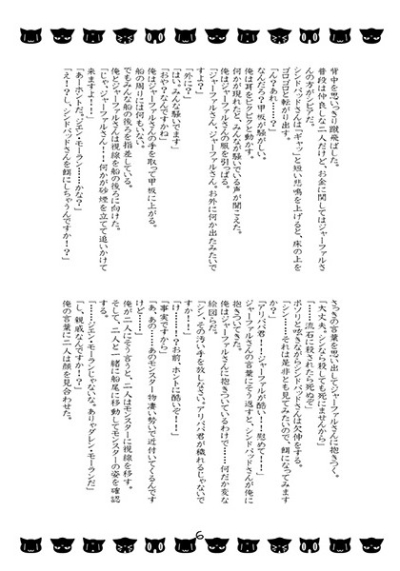 背中を思いっきり蹴飛ばした。
普段は仲良し二人だけど、お金に関してはジャーファルさ
んの方がシビアだ。
シンドバッドさんは「ギャッ」と短い悲鳴を上げると、床の上を
ゴロゴロと転がり出す。
「ん？あれ……？」
なんだろ？甲板が騒がしい。
俺は耳をピクピクと動かす。
何かが現れたと、みんなが騒いでいる声が聞こえた。
俺はジャーファルさんの服を引っぱる。
「ジャーファルさん、ジャーファルさん。お外に何か出たみたいで
すよ？」
「外に？」
「はい。みんな騒いでます」
「おや？なんですかね」
俺はジャーファルさんの手を取って甲板に上がる。
船の周りには何もいない。
でもみんな船の後ろを指差している。
俺とジャーファルさんは視線を船の後ろに向けた。
「じゃ、ジャーファルさん！！何かが砂煙を立てて追いかけて
来ますよーーー！」
「あーホントだ。ジエン・モーラン……かな？」
「え！？し、シンドバッドさんを餌にしちゃうんですか！？」
さっきの言葉を思い出してジャーファルさんに抱きつく。
「大丈夫。シンなら殺しても死にませんから」
「……流石に殺されたら死ぬぞ」
ボソリと呟きながらシンドバッドさんは欠伸をする。
「シン……それは是非とも見てみたいので、餌になってみます
か？」
「アリババ君！！ジャーファルが酷い！！慰めて！！」
ジャーファルさんの言葉にそう返すと、シンドバッドさんが俺に
抱きついてきた。
俺はジャーファルさんに抱きついているわけで……何だか変な
絵図らだ。
「シン、その汚い手を放しなさい。アリババ君が穢れるじゃないで
すか！！」
「け……！？お前、ホントに酷いぞ！！」
「事実ですから」
「あ、あの……あのモンスター物凄い勢いで近付いてくるんです
けど」
俺が二人にそう言うと、二人はモンスターに視線を移す。
そして、二人と一緒に船尾に移動してモンスターの姿を確認
する。
「……ジエン・モーランじゃないな。ありゃダレン・モーランだ」
「し、親戚なんですか！？」
俺の言葉に二人は顔を見合わせた。
6